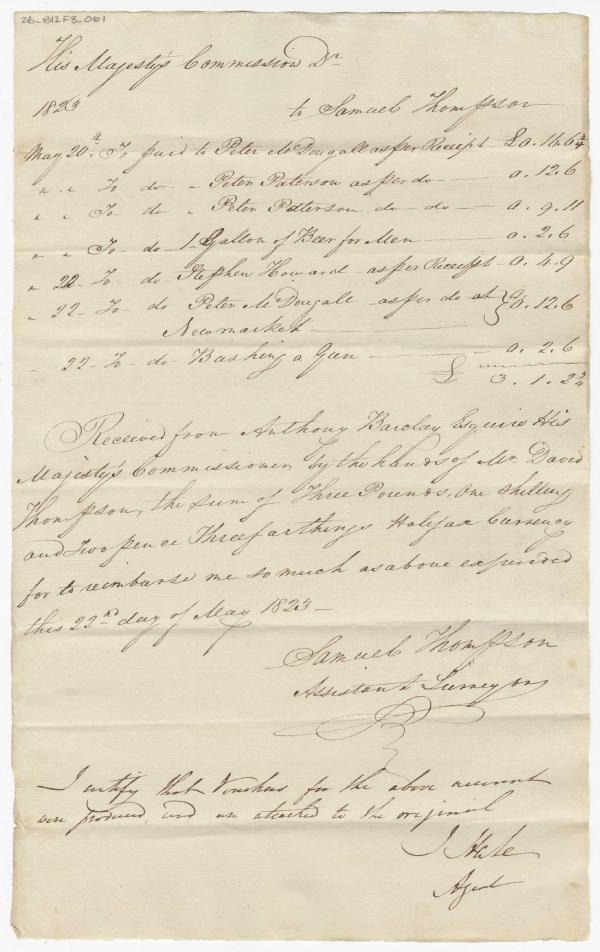 26-B12F3-061
His Majesty's Commission Dr
1823 to Samuel Thompson
May 20th To paid to Peter McDougall as per Receipt - £0.16.6¾
" " To - do - " Peter Paterson as per do - 0.12.6
" " To - do " Peter Patterson do - do - 0.9.11
" " To - do 1 Gallon of Beer for Men - 0.2.6
" 22 - To - do - Stephen Howard - as per Receipt - 0.4.9
" 22 - To - do Peter McDougall - as per do at } 0.12.6
Newmarket -
- 22 - To - do Bushing a Gun - 0.2.6
£ 3.1.2¾
Received from Anthony Barclay Esquire His
Majesty's Commissioner by the hands of Mr David
Thompson, the sum of Three Pounds, One Shilling
and Two pence Three farthings Halifax Currency
for to reimburse me so much as above expended
this 22nd day of May 1823 -
Samuel Thompson
Assistant Surveyor
I certify that Vouchers for the above account
were produced, and are attached to the original
J Hale
Agent